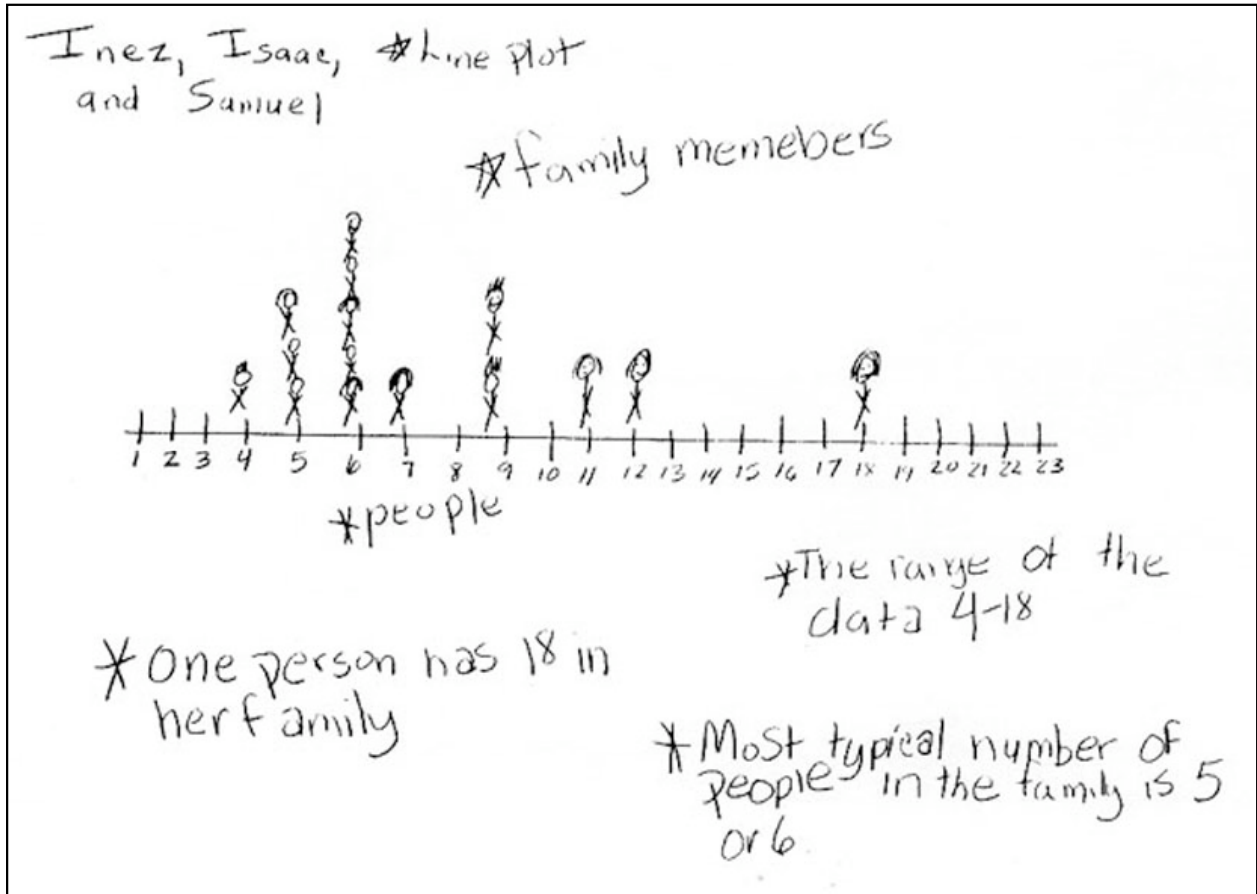 Inez, Isaac, *Line plot
and Samuel
*family memebers
1 2 3 4 5 6 7 8 9 10 11 12 13 14 15 16 17 18 19 20 21 22 23
*people
*The range of the
data 4-18
*One person has 18 in
her family
*Most typical number of
people in the family is 5
or 6